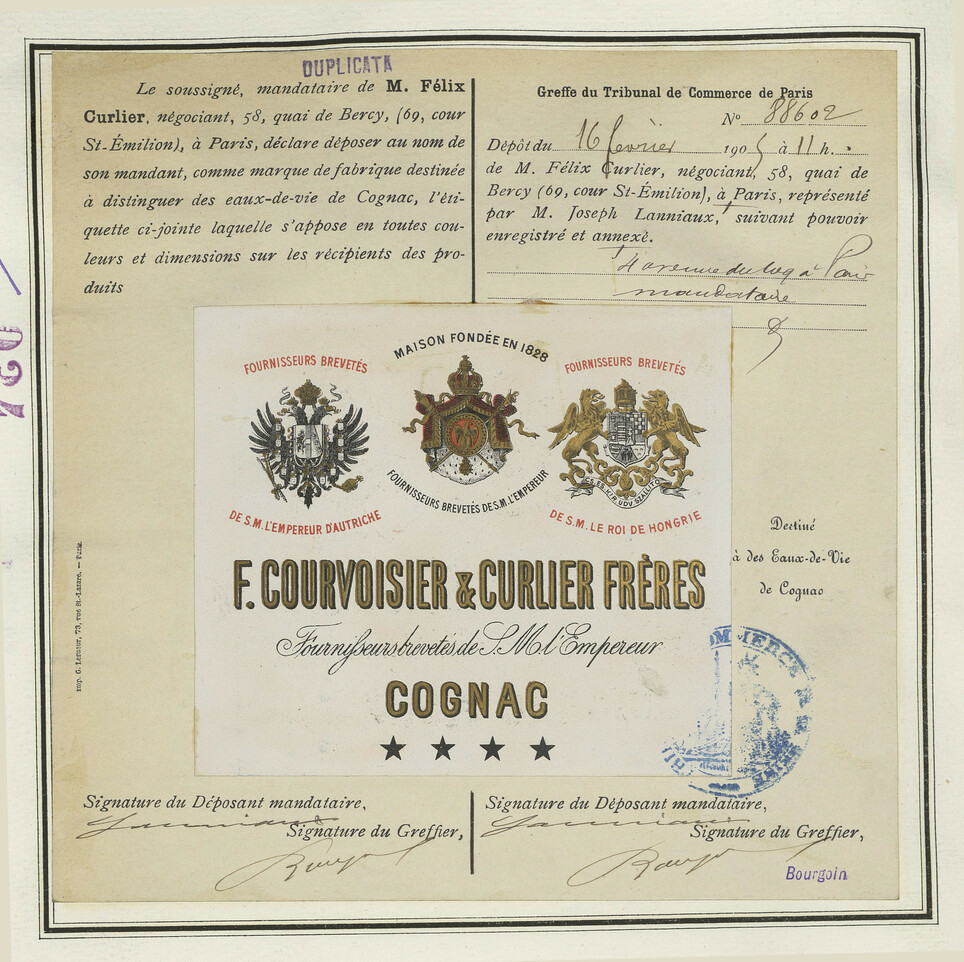 DUPLICATA
Le soussigné, mandataire de M. Félix
Curlier, négociant, 58, quai de Bercy, (69, cour
St-Émilion), à Paris, déclare déposer au nom de
son mandant, comme marque de fabrique destinée
à distinguer des eaux-de-vie de Cognac, l'éti-
quette ci-jointe laquelle s'appose en toutes cou-
leurs et dimensions sur les récipients des pro-
duits
Greffe du Tribunal de Commerce de Paris
No 88602
Dépôt du 16 février 1905 à 11 h.
de M. Félix Curlier, négociant, 58, quai de
Bercy (69, cour St-Émilion), à Paris, représenté
par M. Joseph Lanniaux, suivant pouvoir
enregistré et annexé.
4 avenue du coq à Paris
mandataire
FOURNISSEURS BREVETÉS
DE S.M. L'EMPEREUR D'AUTRICHE
MAISON FONDÉE EN 1828
FOURNISSEURS BREVETÉS DE S.M. L'EMPEREUR
FOURNISSEURS BREVETÉS
DE S.M. LE ROI DE HONGRIE
F. COURVOISIER & CURLIER FRÈRES
Fournisseurs brevetés de S. M. l'Empereur
COGNAC
Destiné
à des Eaux-de-Vie
de Cognac
COMMERCE
Signature du Déposant mandataire,
Lanniaux
Signature du Greffier,
Signature du Déposant mandataire,
Lanniaux
Signature du Greffier,
Bourgoin